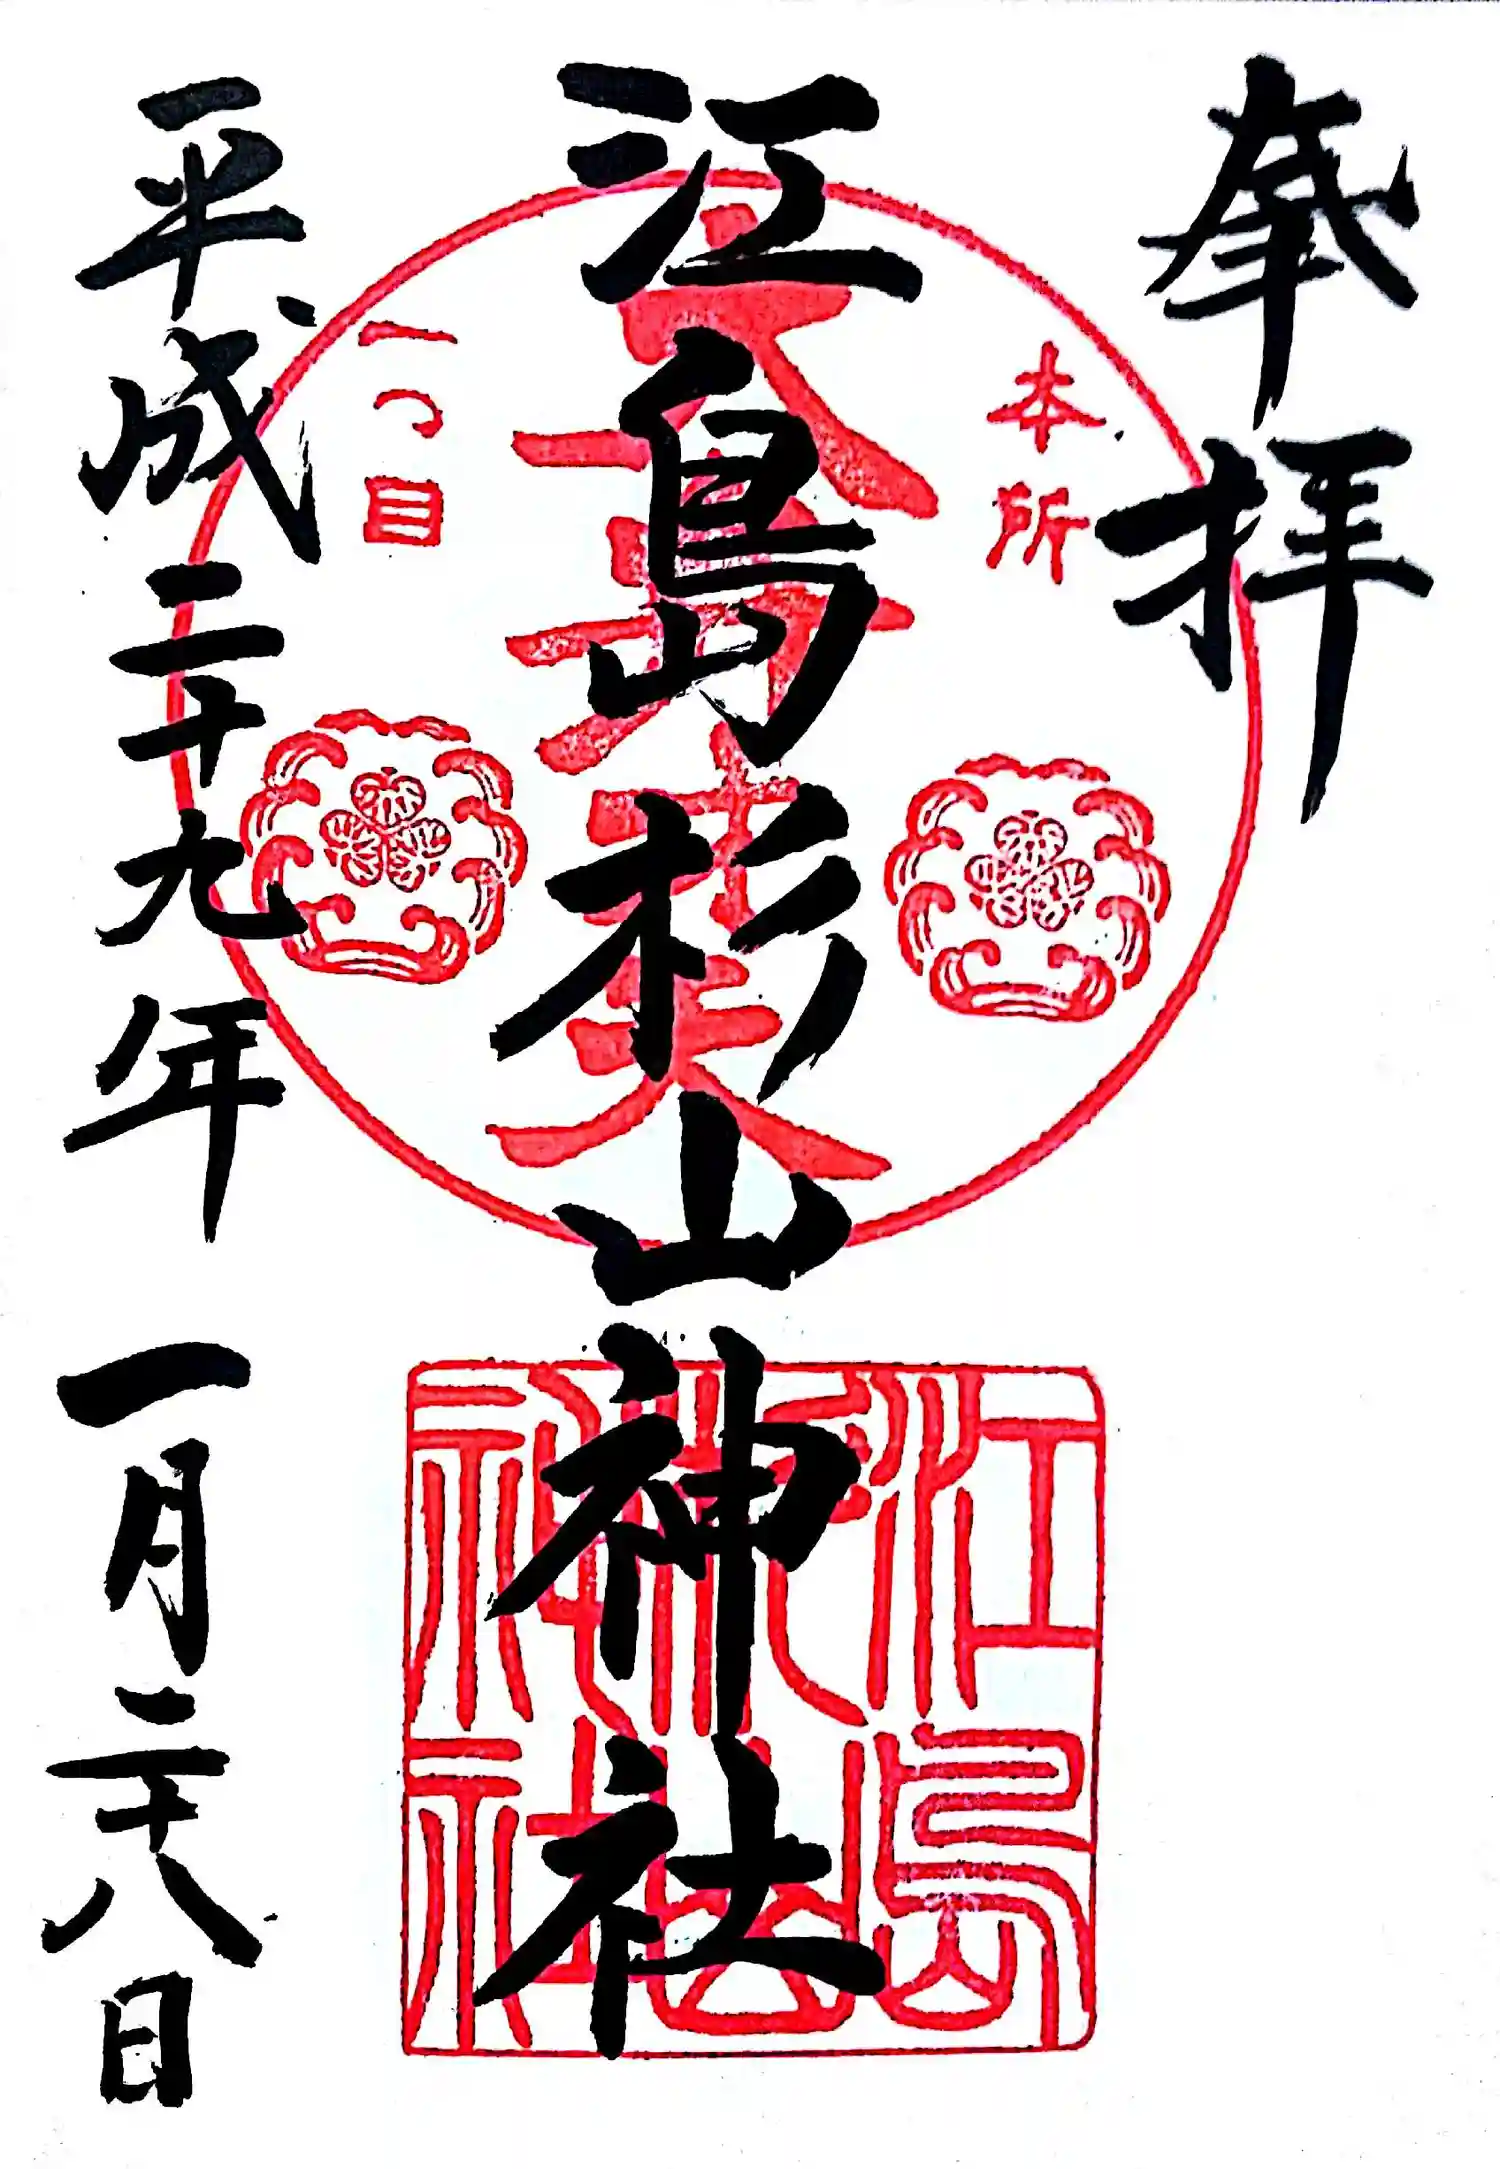 奉拝
本所
江島杉山神社
一つ目
平成二十九年一月二十八日
江島杉山神社